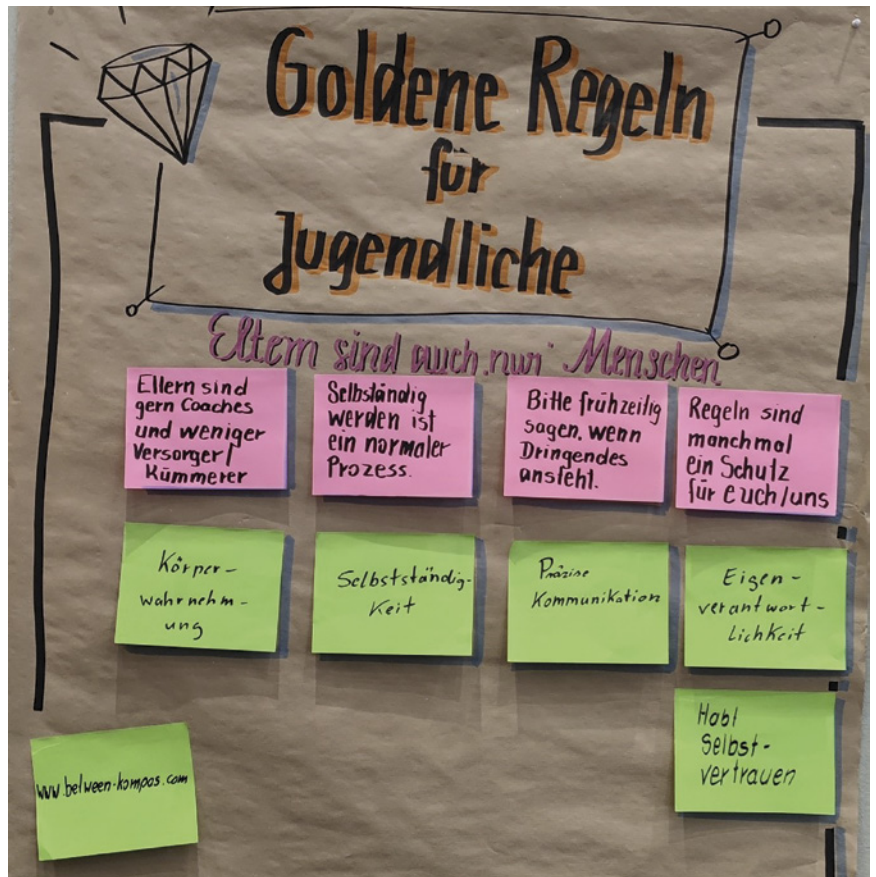 Goldene Regeln
für
Jugendliche
Eltern sind auch nur Menschen
Eltern sind
gern Coaches
und weniger
Versorger/
Kümmerer
Selbständig
werden ist
ein normaler
Prozess.
Bitte frühzeitig
sagen, wenn
Dringendes
ansteht.
Regeln sind
manchmal
ein Schutz
für euch/uns
Körper-
wahrnehm-
ung
Selbstständig-
Keit
Präzise
Kommunikation
Eigen-
verantwort-
lichkeit
Habt
Selbst-
vertrauen
www.between-kompas.com